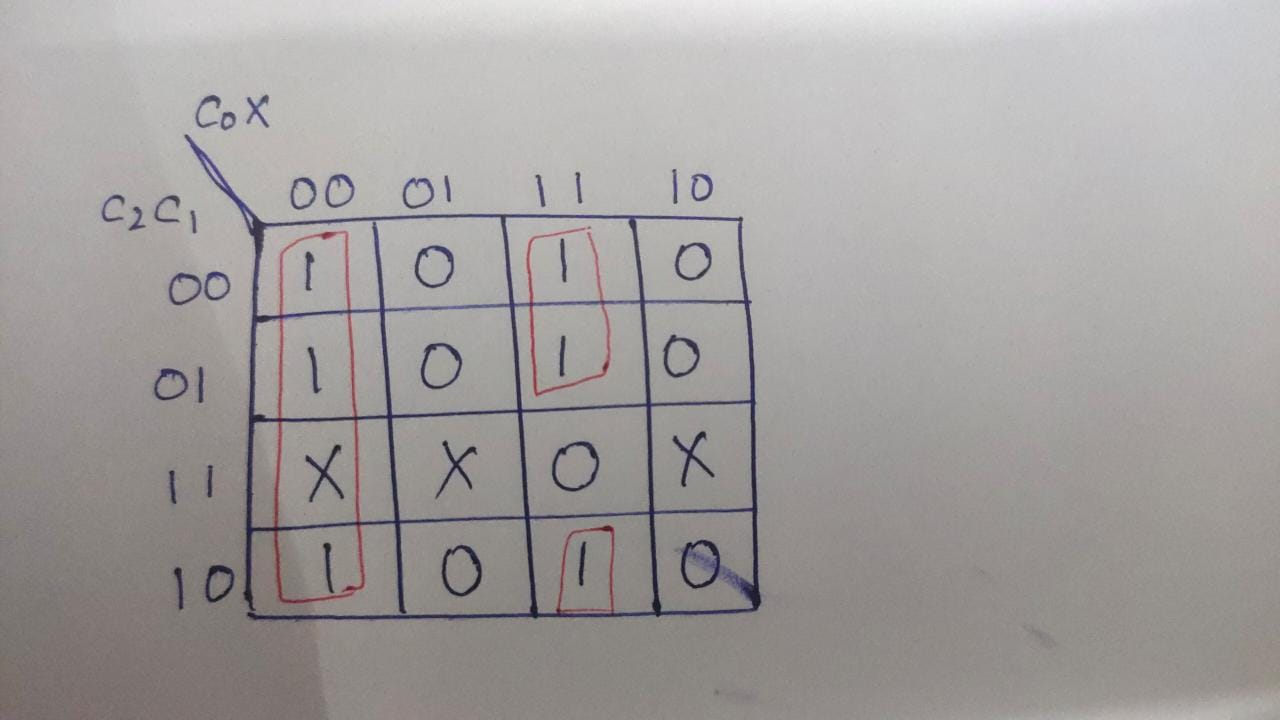 C₀X
C₂C₁
00 01 11 10
00 1 0 1 0
01 1 0 1 0
11 X X 0 X
10 1 0 1 0